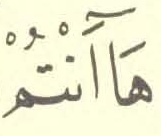 هَآأَنْتُمْ